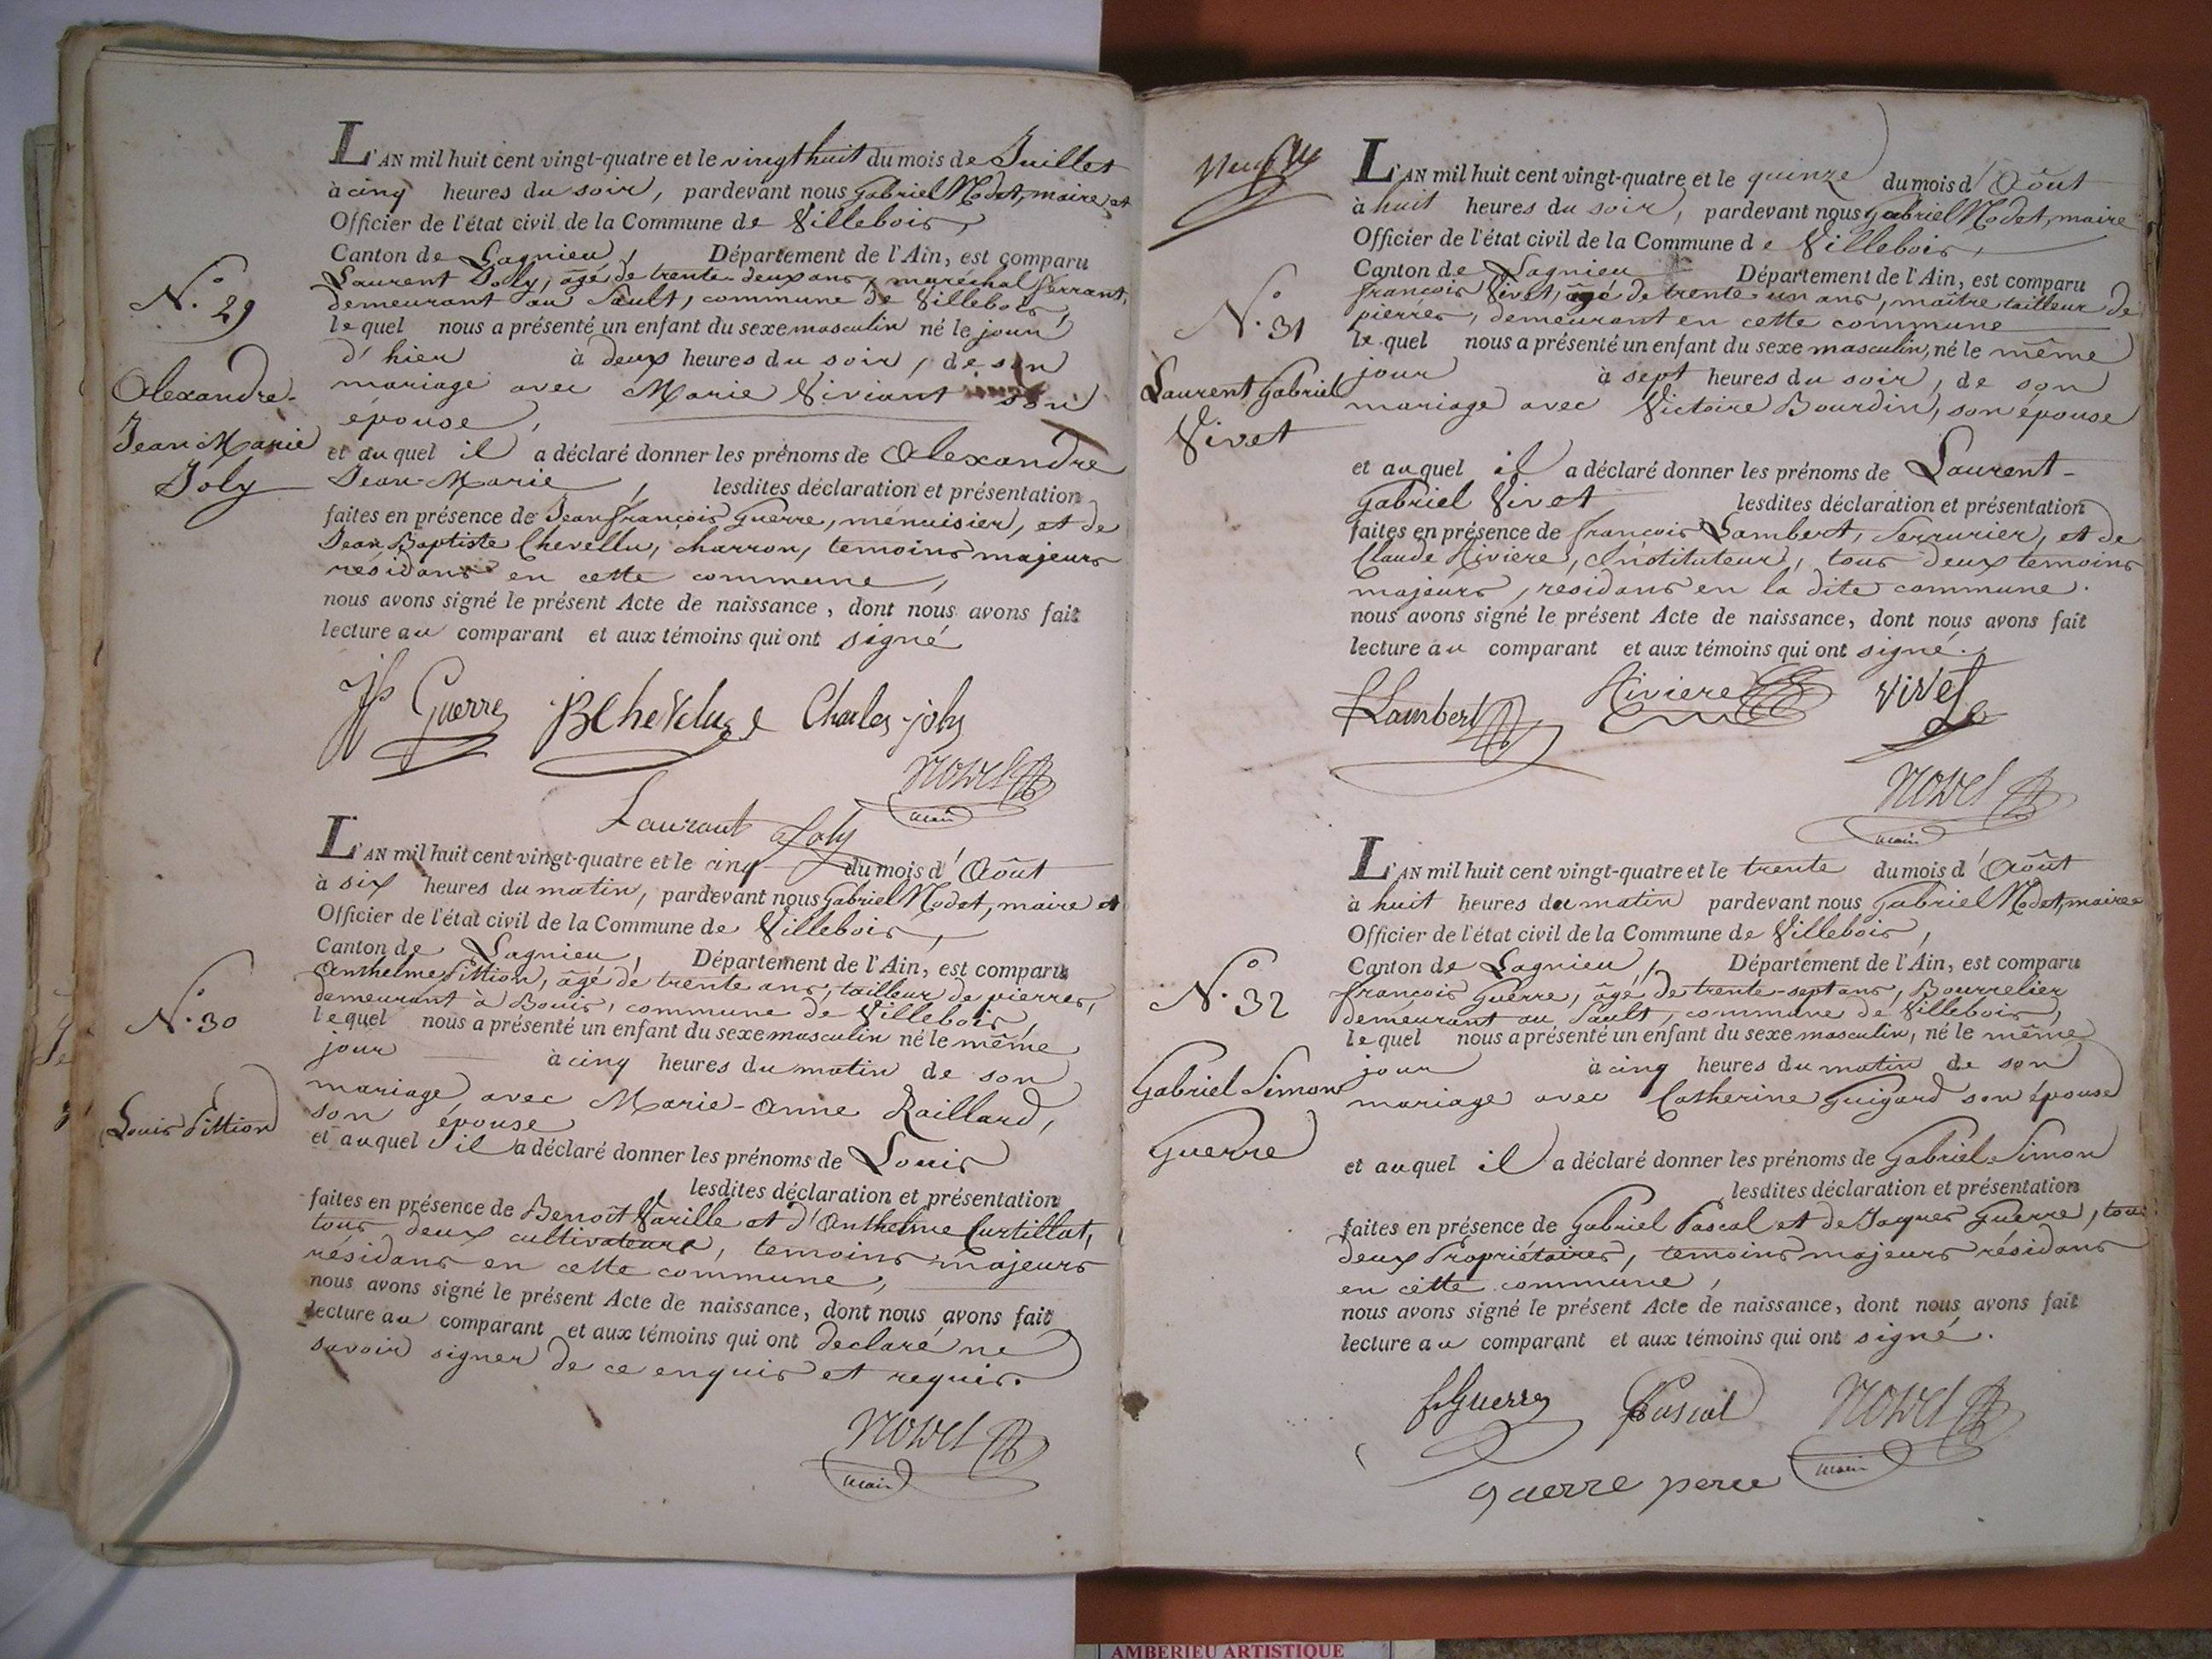 N.o 29
Alexandre-
Jean Marie
Joly
L'AN mil huit cent vingt-quatre et le vingt huit du mois de Juillet
à cinq heures du soir, pardevant nous Gabriel Nodet, maire et
Officier de l'état civil de la Commune de Villebois,
Canton de Lagnieu, Département de l'Ain, est comparu
Laurent Joly, âgé de trente-deux ans, maréchal ferrant,
demeurant au Sault, commune de Villebois,
lequel nous a présenté un enfant du sexe masculin né le jour
d'hier à deux heures du soir, de son
mariage avec Marie Viviant son
épouse,
et auquel il a déclaré donner les prénoms de Alexandre
Jean-Marie, lesdites déclaration et présentation
faites en présence de Jean françois Guerre, ménuisier, et de
Jean Baptiste Chevellu, charron, temoins majeurs
residans en cette commune,
nous avons signé le présent Acte de naissance, dont nous avons fait
lecture au comparant et aux témoins qui ont signé
Guerre BChevelu Charles joly
Nodet
maire
Laurant Joly
N.o 30
Louis Fittion
L'AN mil huit cent vingt-quatre et le cinq du mois d'Août
à six heures du matin, pardevant nous Gabriel Nodet, maire et
Officier de l'état civil de la Commune de Villebois,
Canton de Lagnieu, Département de l'Ain, est comparu
Anthelme Fittion, âgé de trente ans, tailleur de pierres,
demeurant à Bouis, commune de Villebois,
lequel nous a présenté un enfant du sexe masculin né le même
jour à cinq heures du matin de son
mariage avec Marie-Anne Raillard,
son épouse
et auquel il a déclaré donner les prénoms de Louis
lesdites déclaration et présentation
faites en présence de Benoît Varille et d'Anthelme Curtillat,
tous deux cultivateurs, temoins majeurs
résidans en cette commune,
nous avons signé le présent Acte de naissance, dont nous avons fait
lecture au comparant et aux témoins qui ont declaré ne
savoir signer de ce enquis et requis.
Nodet
maire
N.o 31
Laurent Gabriel
Vivet
L'AN mil huit cent vingt-quatre et le quinze du mois d'Août
à huit heures du soir, pardevant nous Gabriel Nodet, maire
Officier de l'état civil de la Commune de Villebois,
Canton de Lagnieu Département de l'Ain, est comparu
françois Vivet, âgé de trente un ans, maître tailleur de
pierres, demeurant en cette commune
lequel nous a présenté un enfant du sexe masculin, né le même
jour à sept heures du soir, de son
mariage avec Victoire Bourdin, son épouse
et auquel il a déclaré donner les prénoms de Laurent-
Gabriel Vivet lesdites déclaration et présentation
faites en présence de françois Lambert, Serrurier, et de
Claude Riviere, Instituteur, tous deux temoins
majeurs, residans en la dite commune.
nous avons signé le présent Acte de naissance, dont nous avons fait
lecture au comparant et aux témoins qui ont signé.
fLambert Riviere vivet
Nodet
maire
N.o 32
Gabriel Simon
Guerre
L'AN mil huit cent vingt-quatre et le trente du mois d'Août
à huit heures du matin pardevant nous Gabriel Nodet, maire
Officier de l'état civil de la Commune de Villebois,
Canton de Lagnieu, Département de l'Ain, est comparu
françois Guerre, âgé de trente-sept ans, Bourrelier
demeurant au Sault, commune de Villebois,
lequel nous a présenté un enfant du sexe masculin, né le même
jour à cinq heures du matin de son
mariage avec Catherine Guigard son épouse
et auquel il a déclaré donner les prénoms de Gabriel-Simon
lesdites déclaration et présentation
faites en présence de Gabriel Pascal et de Jaques Guerre, tous
deux Propriétaires, temoins majeurs résidans
en cette commune,
nous avons signé le présent Acte de naissance, dont nous avons fait
lecture au comparant et aux témoins qui ont signé.
fGuerre Pascal Nodet
maire
guerre pere
AMBERIEU ARTISTIQUE